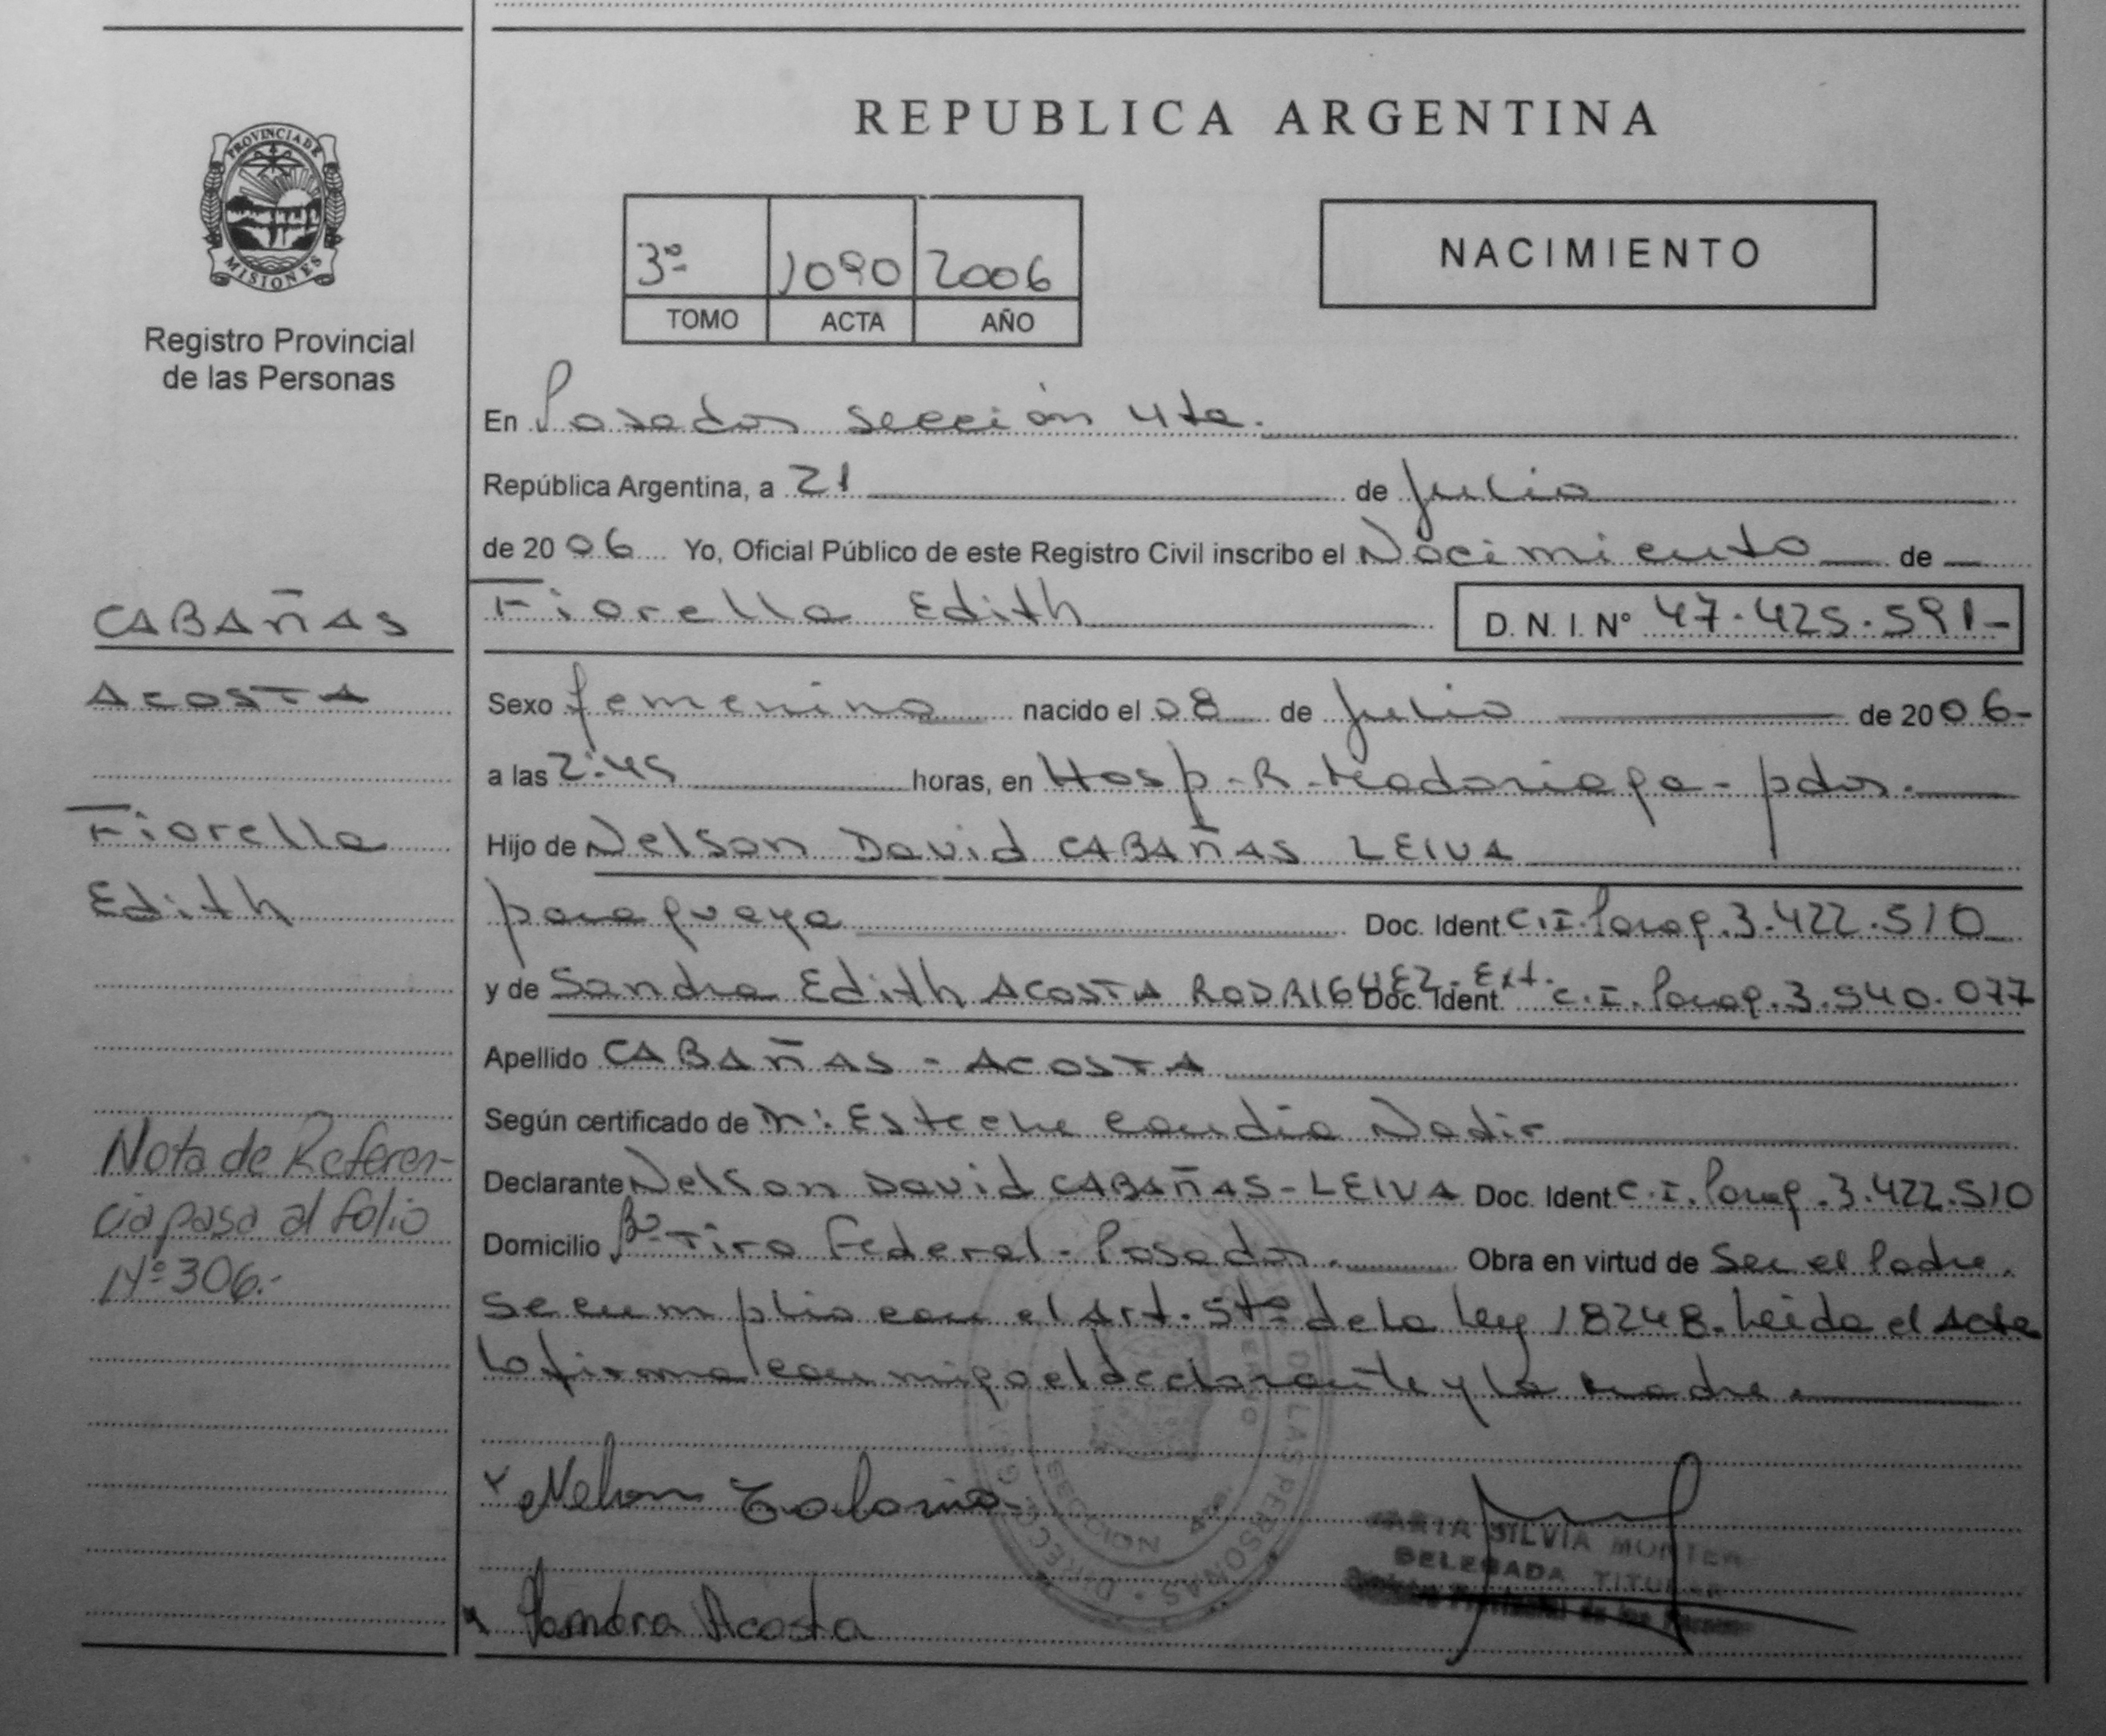 REPUBLICA ARGENTINA
PROVINCIA DE
MISIONES
Registro Provincial
de las Personas
3º 1090 2006
TOMO ACTA AÑO
NACIMIENTO
En Posadas sección 4ta.
República Argentina, a 21 de Julio
de 2006 Yo, Oficial Público de este Registro Civil inscribo el Nacimiento de
Fiorella Edith D. N. I. Nº 47.425.591-
Sexo femenino nacido el 08 de Julio de 2006-
a las 2:45 horas, en Hosp. R. Madariaga - pdas.
Hijo de Nelson David CABAÑAS LEIVA
paraguaya Doc. Ident. C.I. Parag. 3.422.510
y de Sandra Edith ACOSTA RODRIGUEZ - Ext. Doc. Ident. C.I. Parag. 3.540.077
Apellido CABAÑAS - ACOSTA
Según certificado de Esteche Claudia Nadir
Declarante Nelson David CABAÑAS - LEIVA Doc. Ident C.I. Parag. 3.422.510
Domicilio Bº Tiro Federal - Posadas. Obra en virtud de Ser el Padre.
Se cumplio con el Art. 5to de la Ley 18248. Leida el Acta
la firma conmigo el declarante y la madre.
Nelson
Sandra Acosta
SILVIA
DELEGADA TITULAR
CABAÑAS
ACOSTA
Fiorella
Edith
Nota de Referen-
cia pasa al folio
Nº 306.-
DE LAS PERSONAS